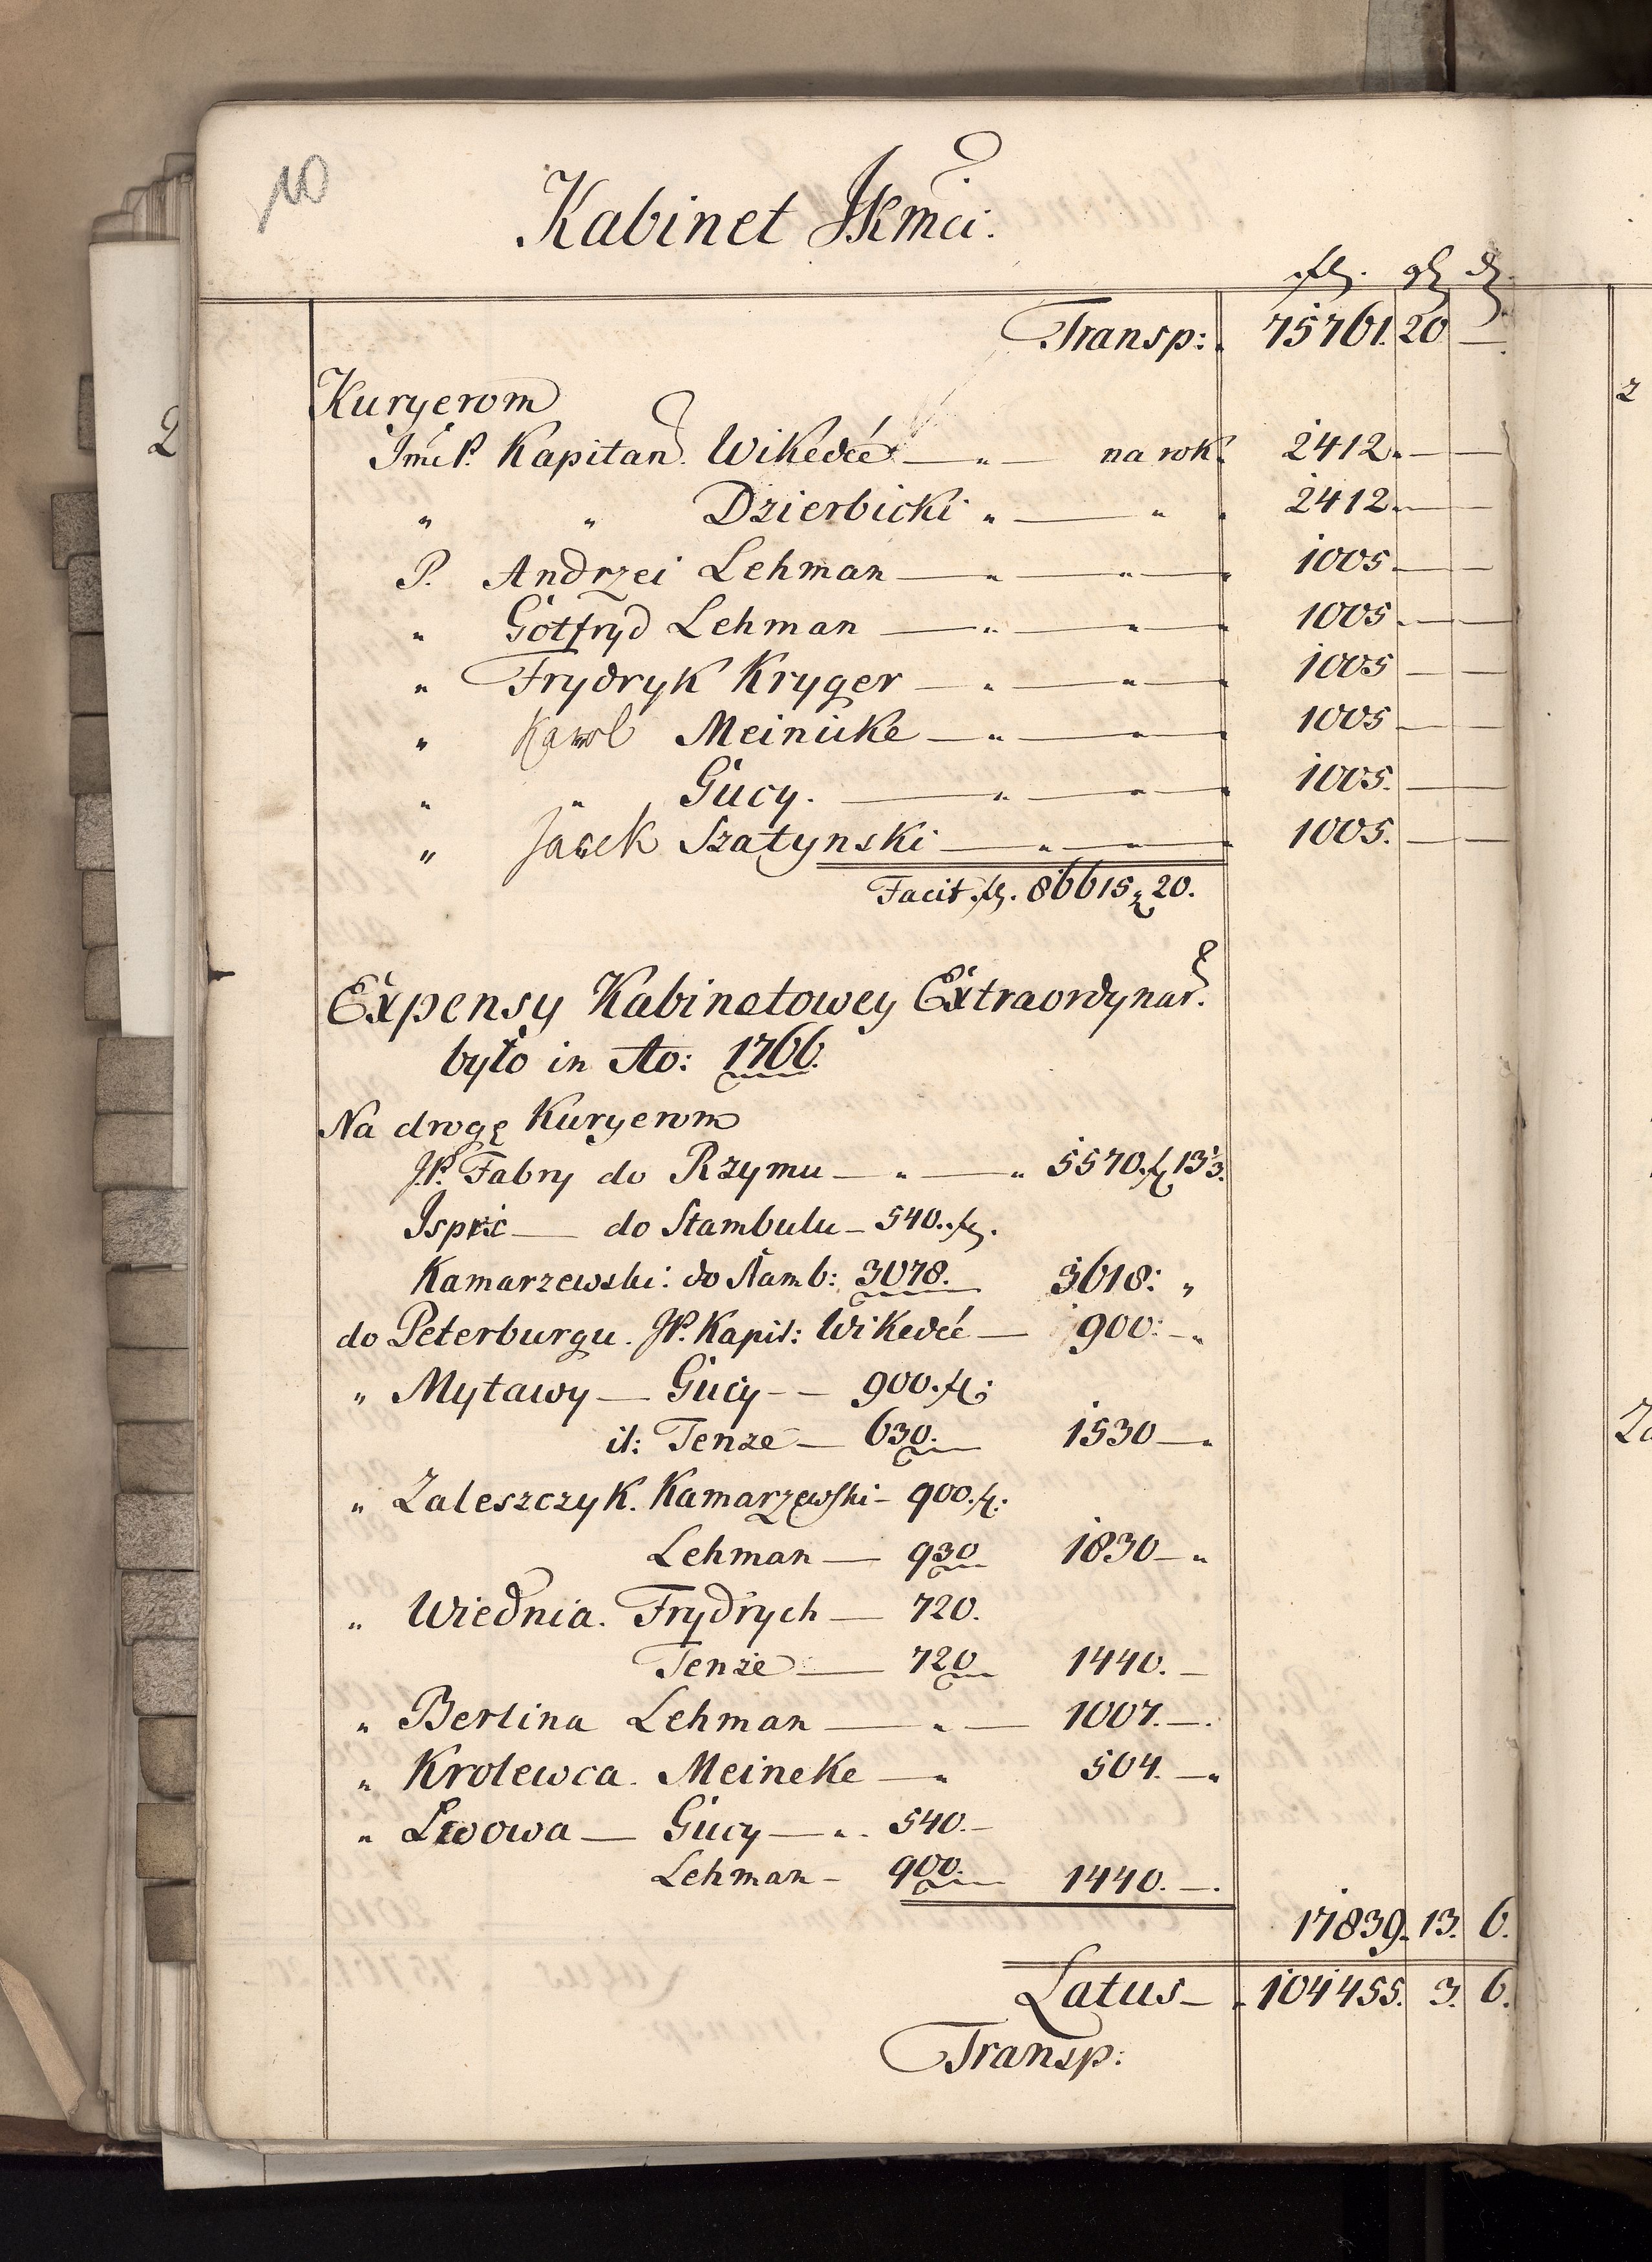 10
Kabinet JKmci:
fl. gl. dl.
Transp: 75761. 20 —
Kuryerom
JmćP. Kapitan. Wikedeé — „ — na rok. 2412. — —
„ „ Dzierbicki „ — „ 2412. — —
P. Andrzei Lehman — „ — „ — 1005. — —
„ Gotfryd Lehman — „ — „ — 1005. — —
„ Frydryk Kryger — „ — „ — 1005 — —
„ Karol Meinicke — „ — „ — 1005 — —
„ „ Gucy. — „ — „ — 1005. — —
„ Jacek Szatynski — „ — „ — 1005. — —
Facit fl. 86615 „ 20.
Expensy Kabinetowey Extraordynar.
było in Ao: 1766.
Na drogę Kuryerom
JP. Fabry do Rzymu — „ — „ 5570. fl 13⅓.
do Stambulu — 540. fl.
Kamarzewski: do Stamb: 3078. 3618: „
do Peterburgu. JP. Kapit: Wikedeé — 900: — „
„ Mytawy — Gucy — — 900. fl:
it: Tenze — 630. 1530 — „
„ Zaleszczyk. Kamarzewski — 900. fl:
Lehman — 930 1830 — „
„ Wiednia. Frydrych — 720.
Tenże — 720 1440. —
„ Berlina Lehman — „ — 1007. — .
„ Krolewca. Meineke — „ 504. — „
„ Lwowa — Gucy — „ . 540. —
Lehman — 900. 1440. — .
17839. 13. 6.
Latus — 104455. 3. 6.
Transp: